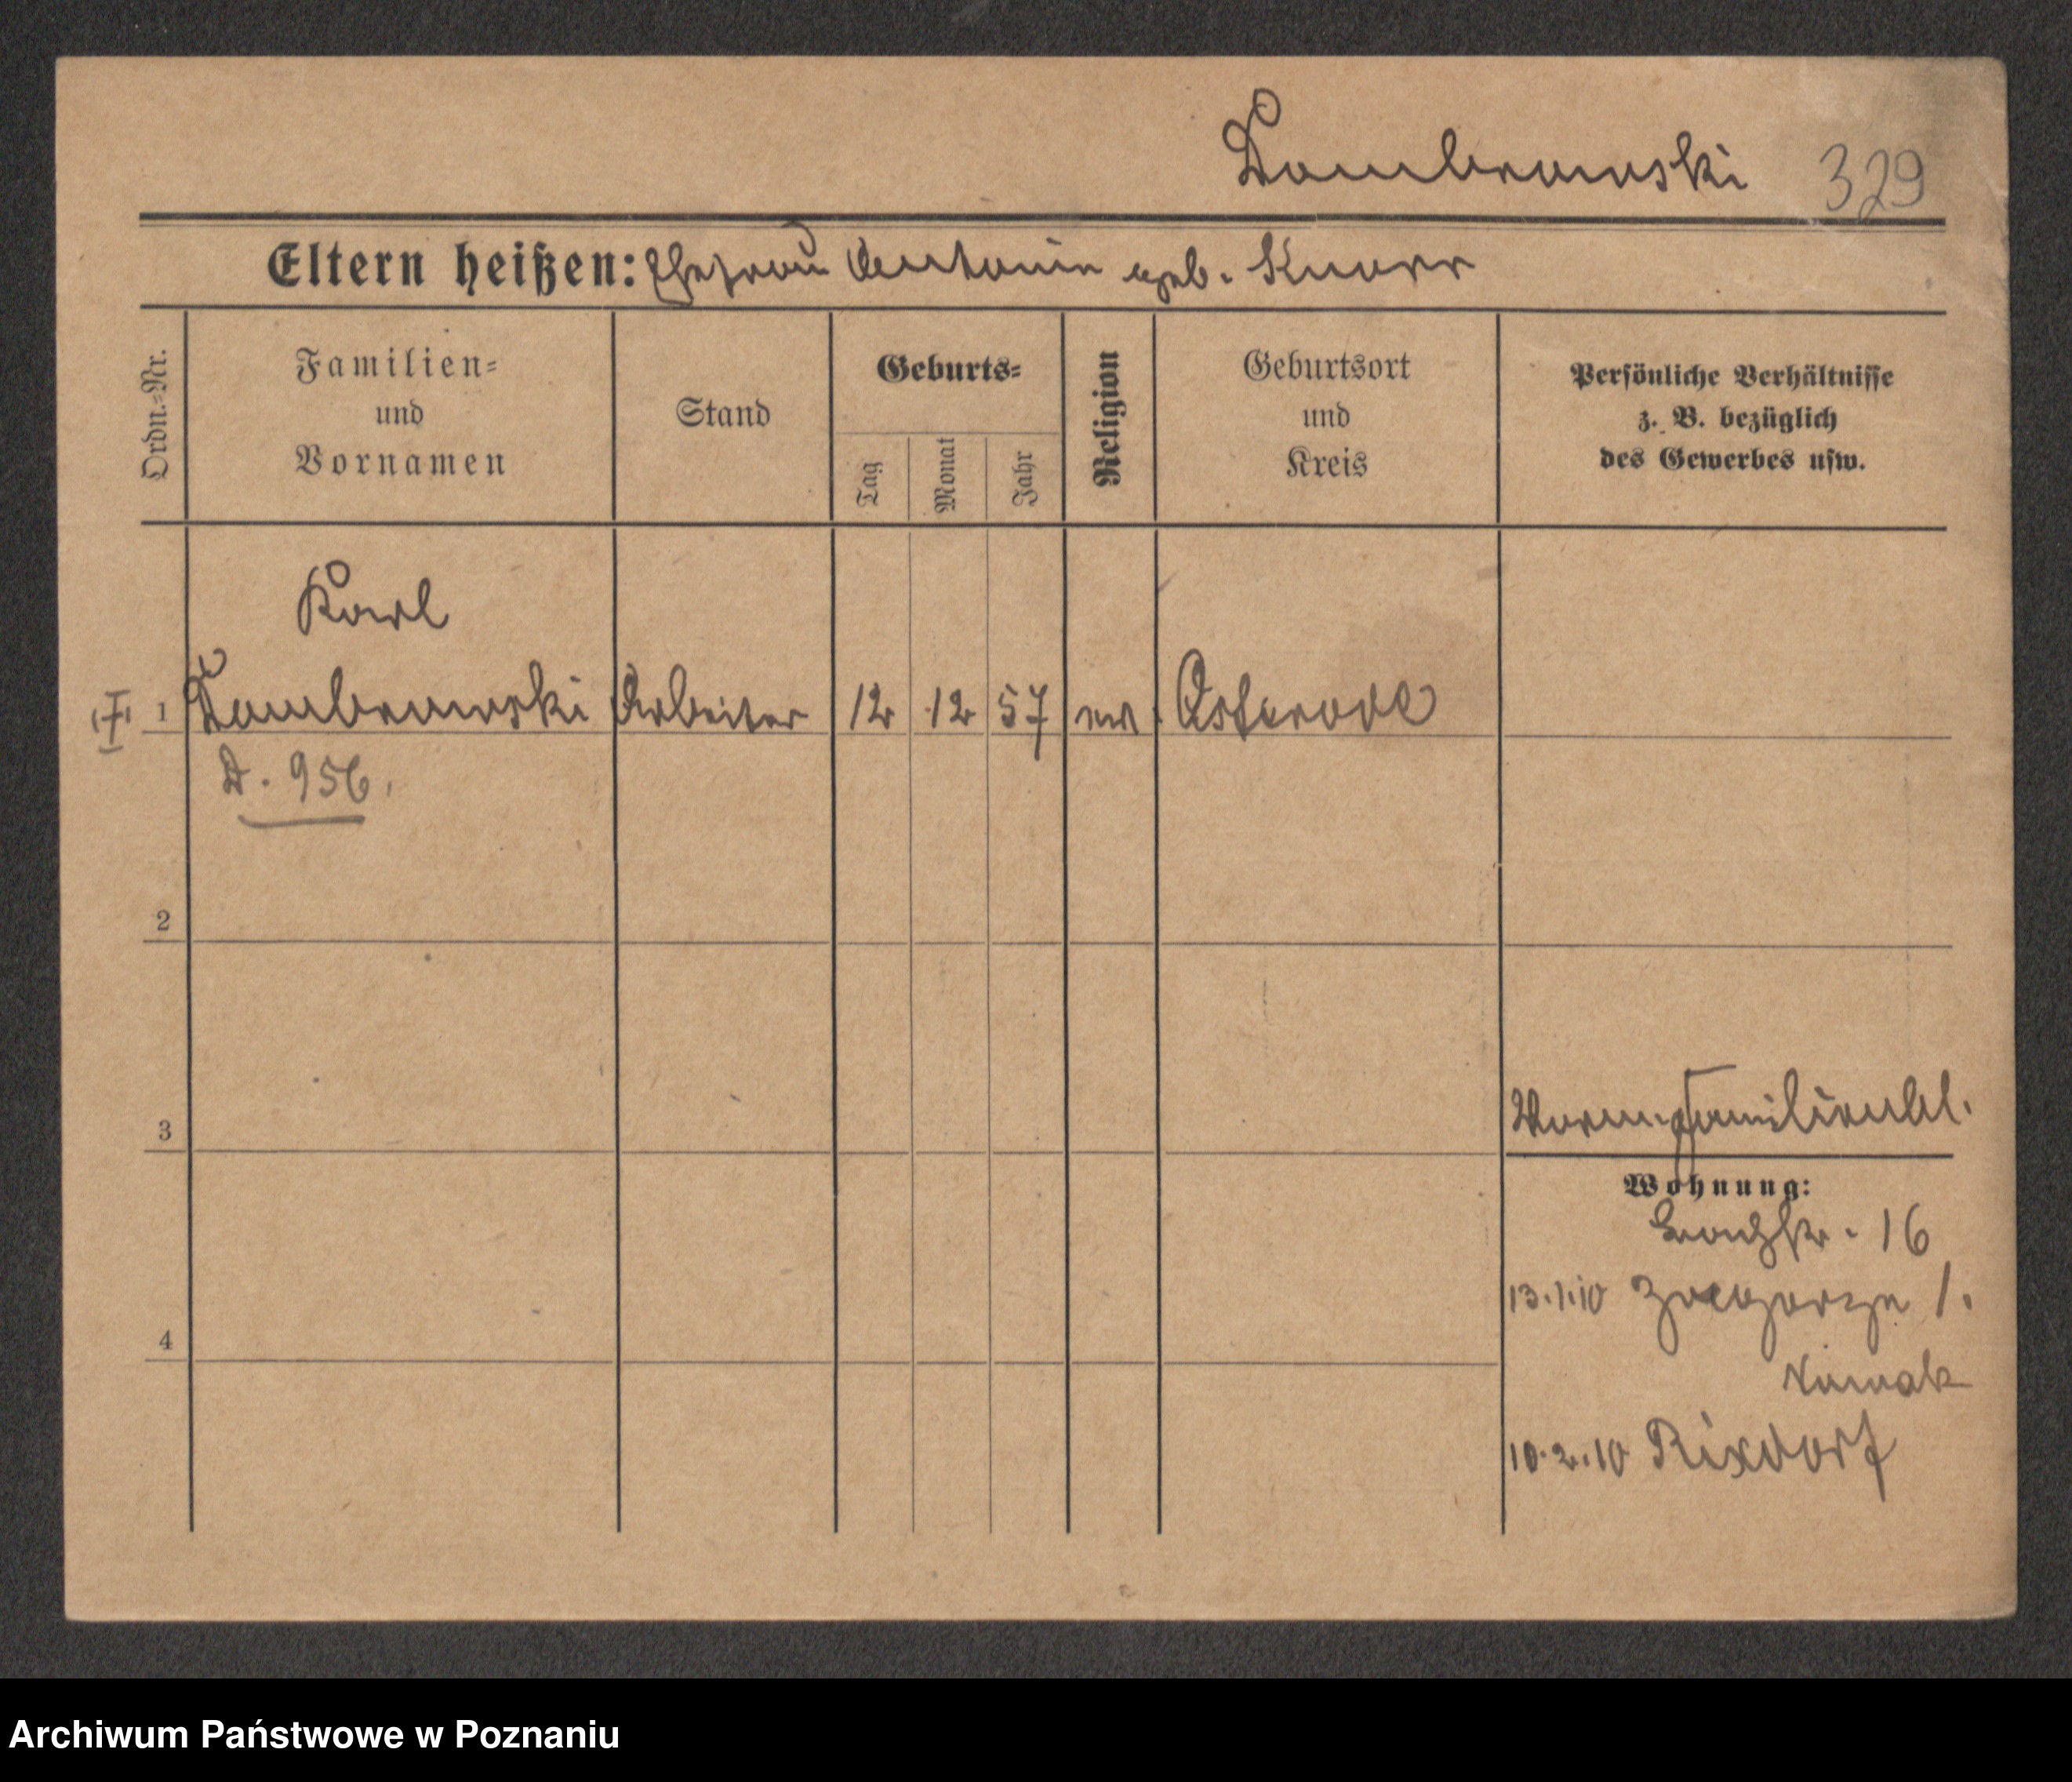 Dombrowski 329
Eltern heißen: Ehefrau Antonie geb. Knorr
Ordn.-Nr.
Familien-
und
Vornamen
Stand
Geburts-
Tag
Monat
Jahr
Religion
Geburtsort
und
Kreis
Persönliche Verhältnisse
z. B. bezüglich
des Gewerbes usw.
Karl
1 Dombrowski Arbeiter 12 12 57 ev. Osterode
D. 956.
2
3
Familienbl.
Wohnung:
16
4
13.1.10 Zawgorze 1.
Nowak
10.2.10 Rixdorf
Archiwum Państwowe w Poznaniu